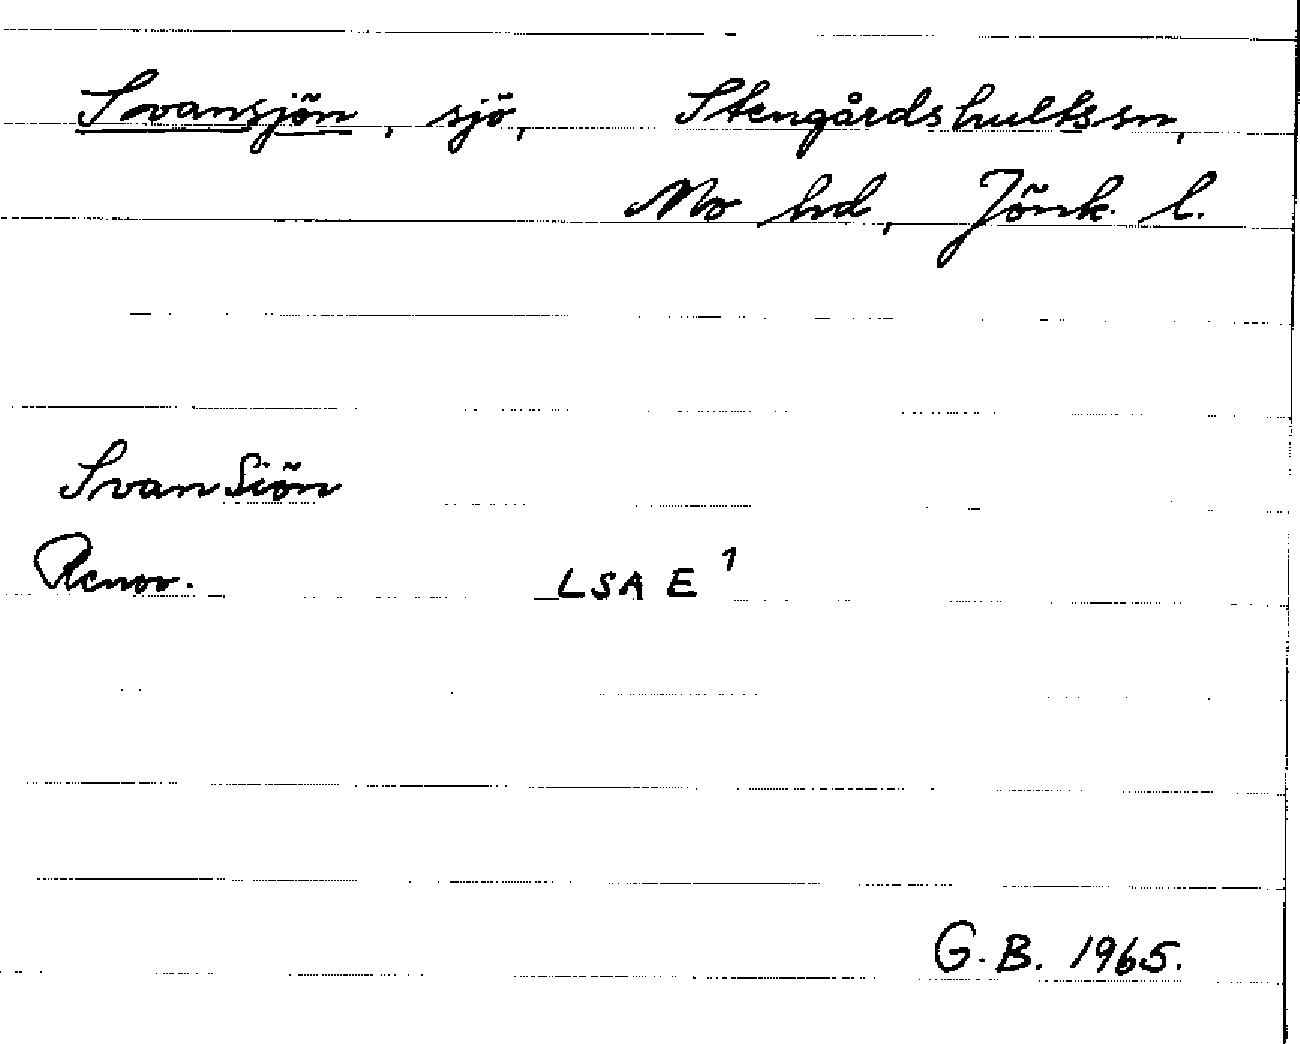 Svansjön, sjö, Stengårdshults sn,
Mo hd, Jönk. l.
Svan Siön
Renov. LSA E¹
G. B. 1965.